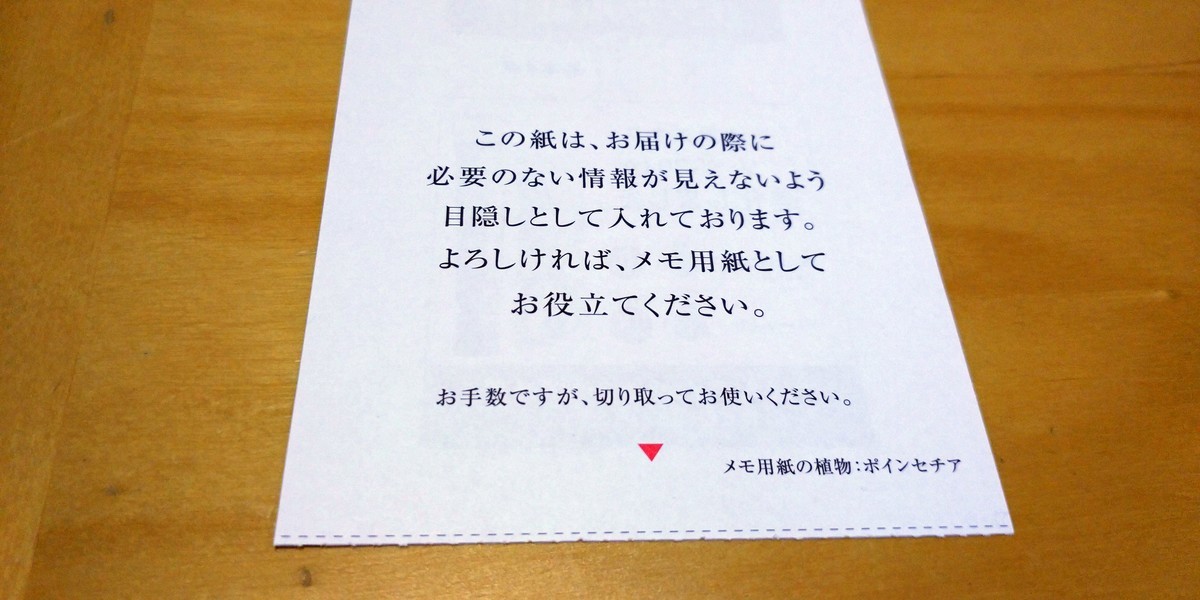 この紙は、お届けの際に
必要のない情報が見えないよう
目隠しとして入れております。
よろしければ、メモ用紙として
お役立てください。
お手数ですが、切り取ってお使いください。
メモ用紙の植物：ポインセチア